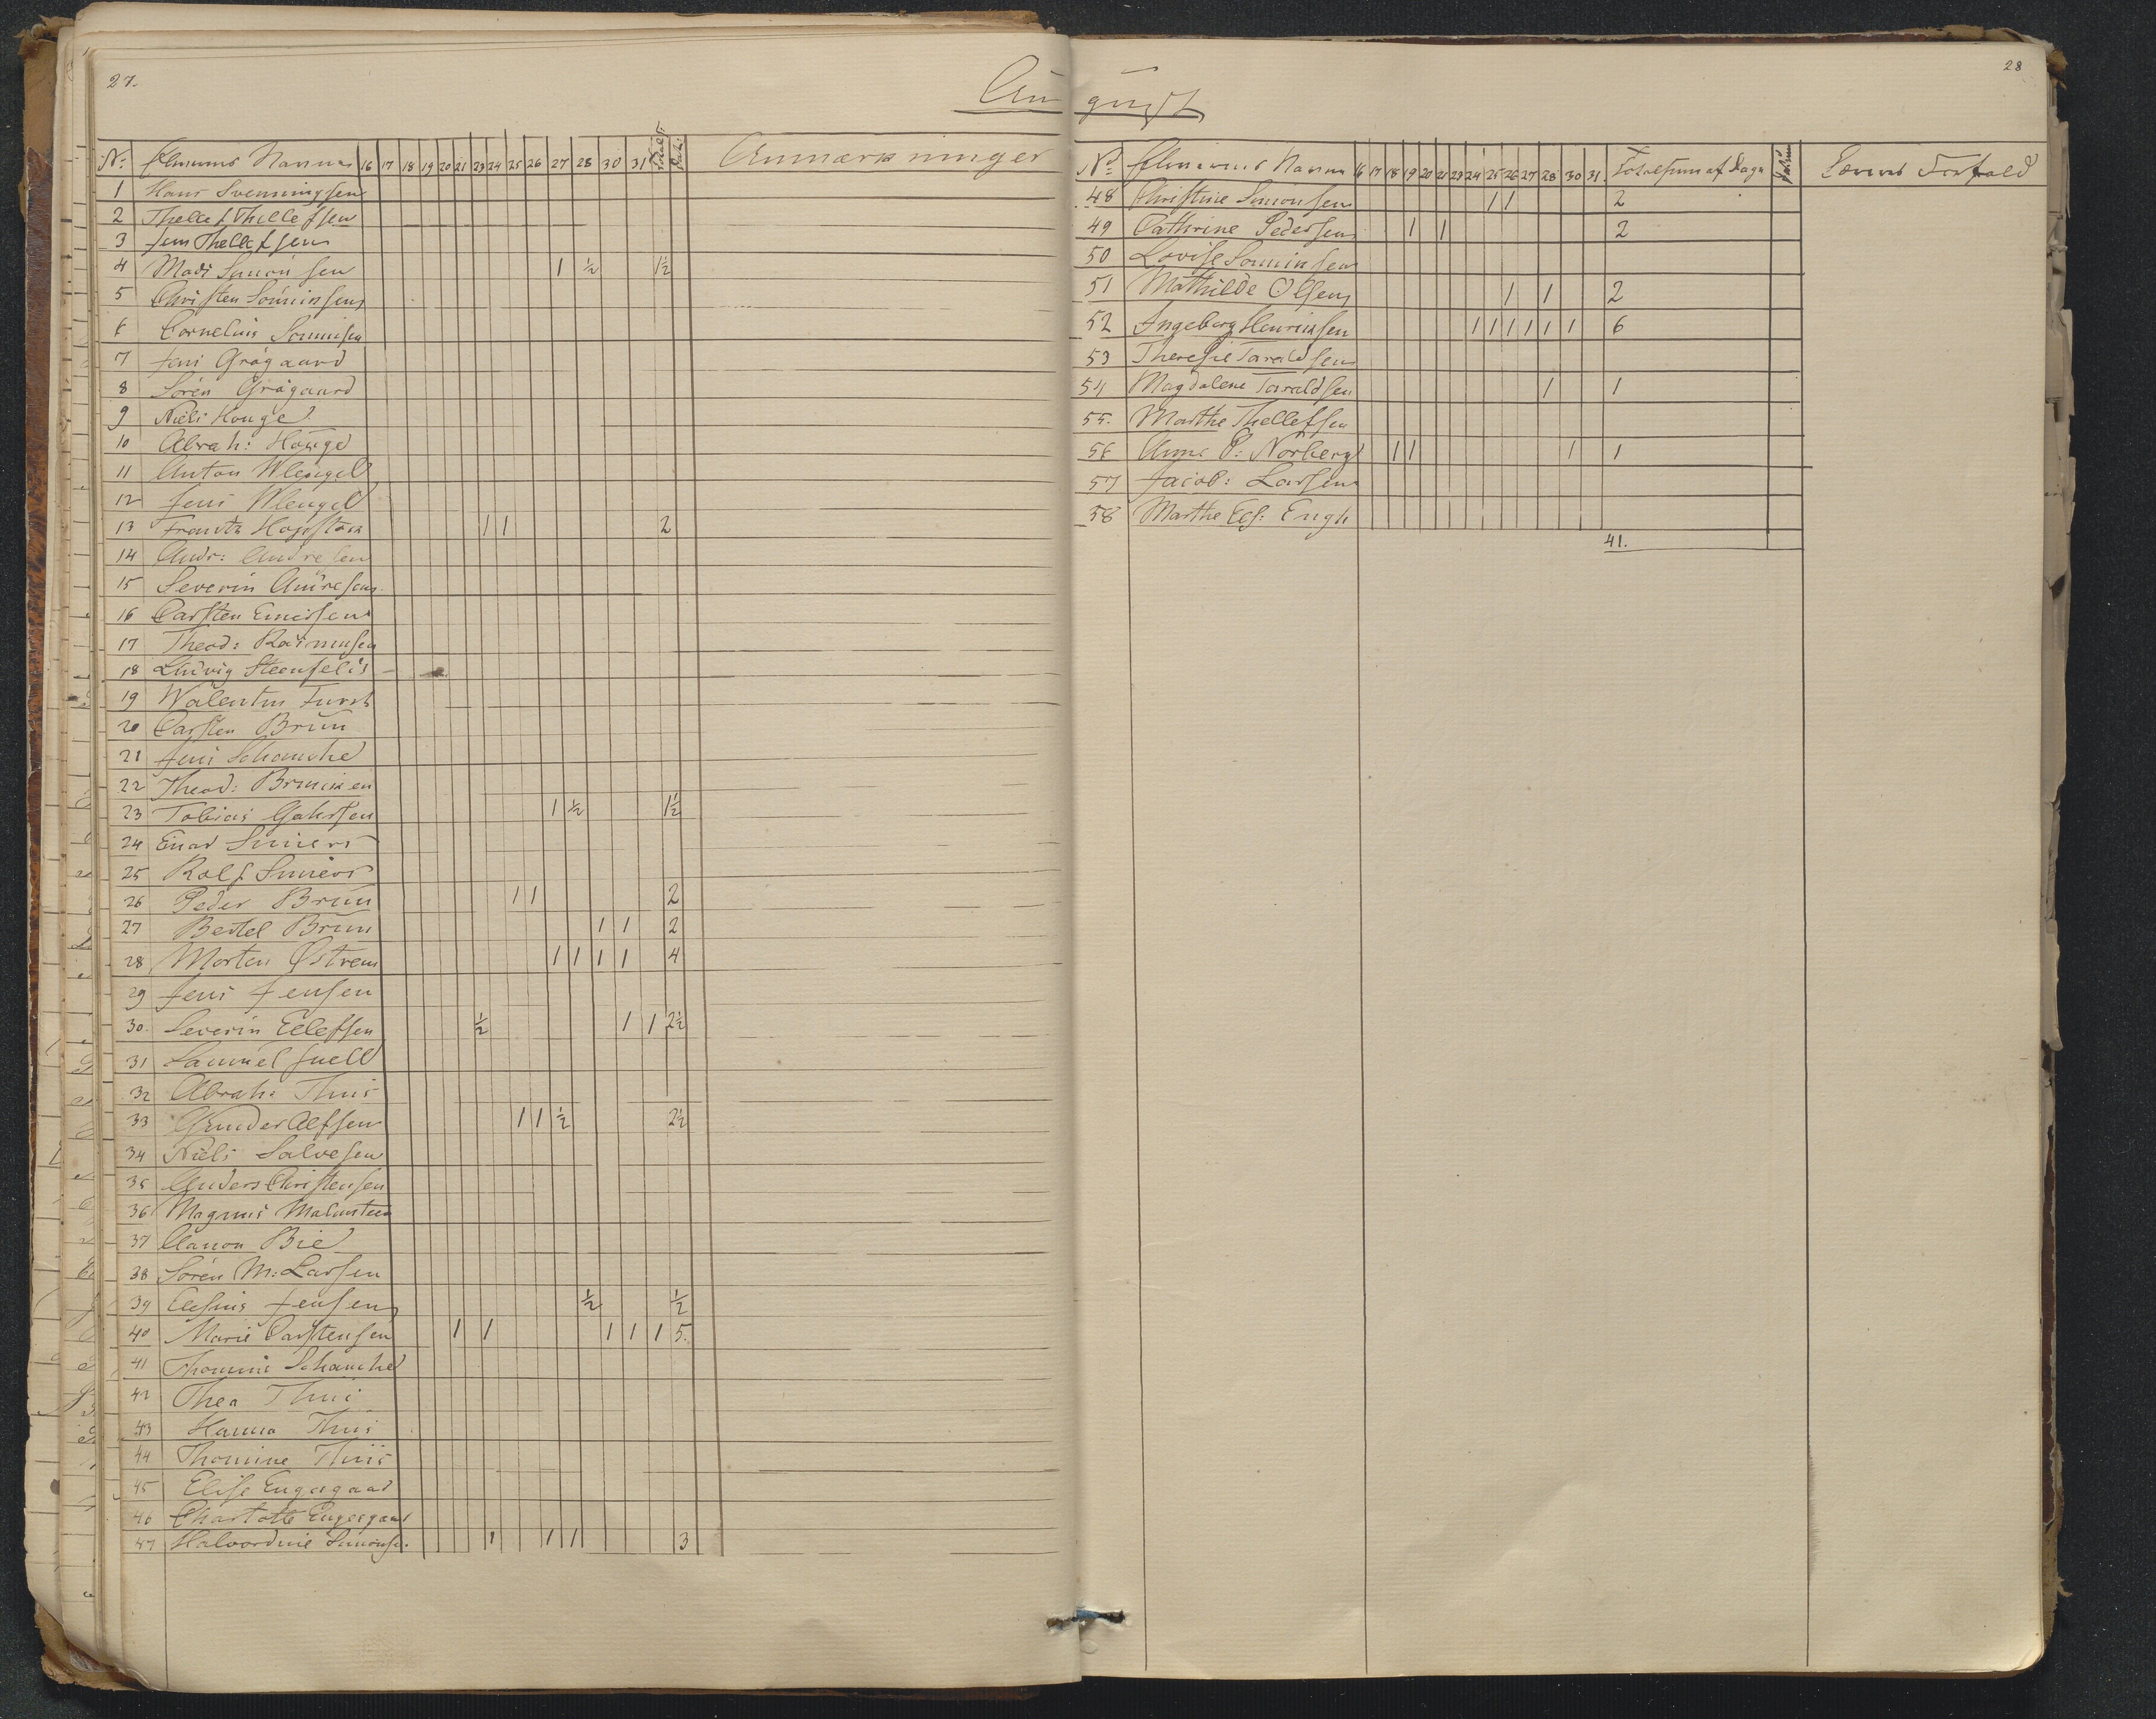 27.
August
28
No: Elevernes Navne 16 17 18 19 20 21 23 24 25 26 27 28 30 31 Anmærkninger
1 Hans Svenningsen
2 Thellef Thellefsen
3 Jens Thellefsen
4 Mads Simonsen 1 ½ 1½
5 Christen
6 Cornelius
7 Jens Grågaard
8 Sören Grågaard
9 Niels Houge
10 Abrah: Houge
11 Anton Wlengel
12 Jens Wlengel
13 1 1 2
14 Andr: Andresen
15 Severin Andresen
16 Carsten
17 Theod: Rasmusen
18 Ludvig
19 Walentin Furst
20 Carsten Brun
21 Jens Schanche
22 Theod:
23 Tobias 1 ½ 1½
24 Einar
25 Rolf
26 Peder Brun 1 1 2
27 Bertel Brun 1 1 2
28 Morten Østrem 1 1 1 1 4
29 Jens Jensen
30. Severin Ellefsen ½ 1 1 2½
31 Samuel
32 Abrah: Thuis
33 Gunder Alfsen 1 1 ½ 2½
34 Niels Salvesen
35 Anders Christensen
36 Magnus
37 Aanon Bie
38 Sören M: Larsen
39 Jensen ½ ½
40 Marie Carstensen 1 1 1 1 1 5.
41 Thomine Schanche
42 Thea Thuis
43 Hanna Thuis
44 Thomine Thuis
45 Elise Engesgaad
46 Charlotte Engesgaad
47 Halvordine Simonse. 1 1 1 3
No Elevernes Navne 16 17 18 19 20 21 23 24 25 26 27 28 30 31. Totalsum af Dage Forfald
48 Christine Simonsen 1 1 2
49 Cathrine Pedersen 1 1 2
50 Lovise
51 Mathilde Olsen 1 1 2
52 Ingeborg Henriksen 1 1 1 1 1 1 6
53 Theresie Taraldsen
54 Magdalene Taraldsen 1 1
55. Marthe Thellefsen
56 Anne P: Norberg 1 1 1 1
57 Jacob: Larsen
58 Marthe Engh
41.